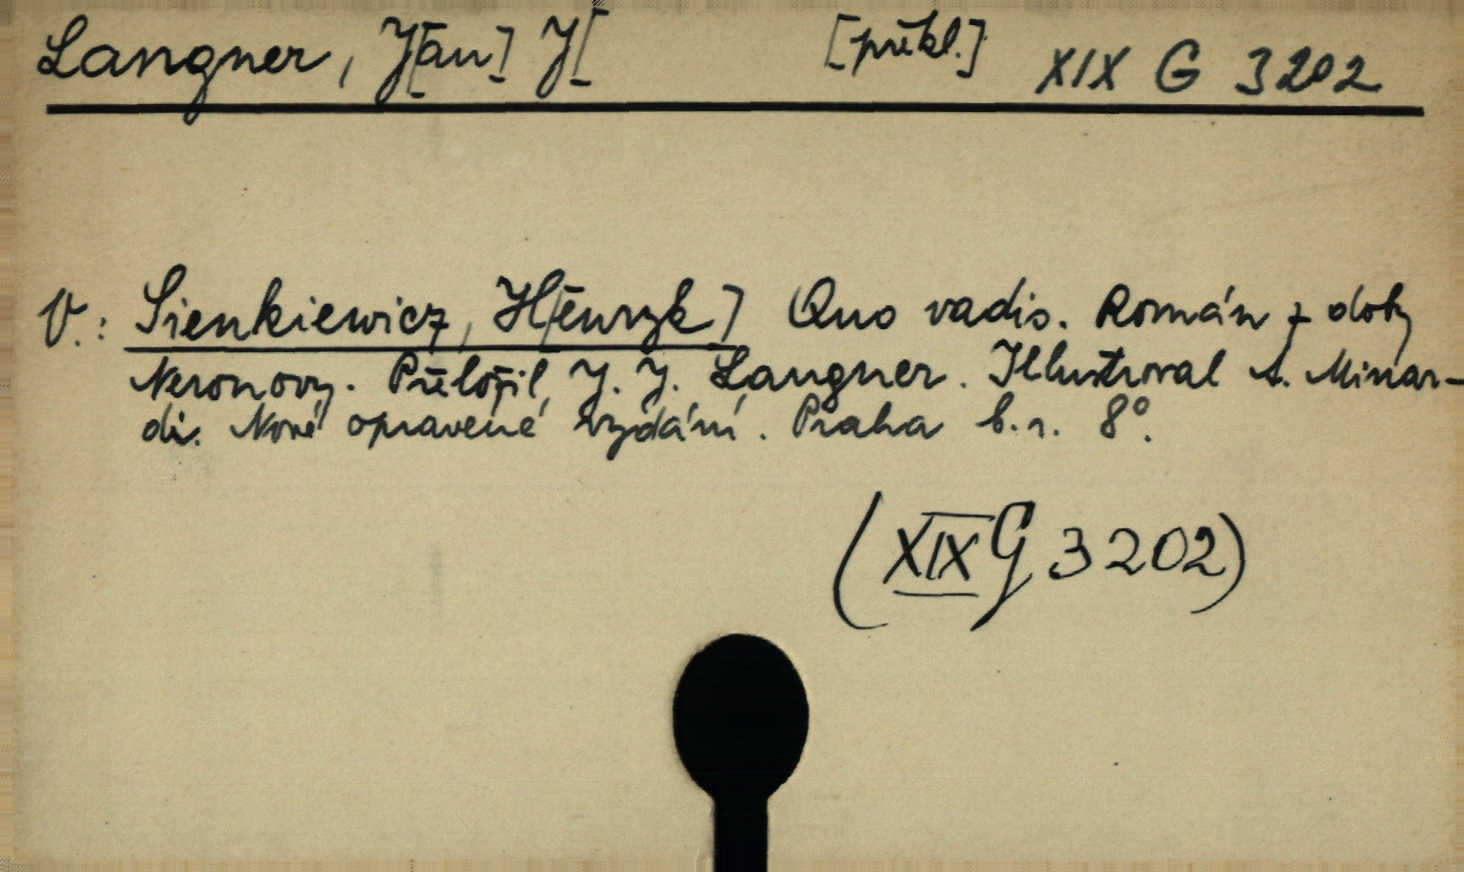 Langner, J[an] J[ [překl.] XIX G 3202
V.: Sienkiewicz, H[enryk] Quo vadis. Román z doby
Neronovy. Přeložil J. J. Langner. Illustroval A. Minar-
di. Nové opravené vydání. Praha b. r. 8°.
(XIX G 3202)